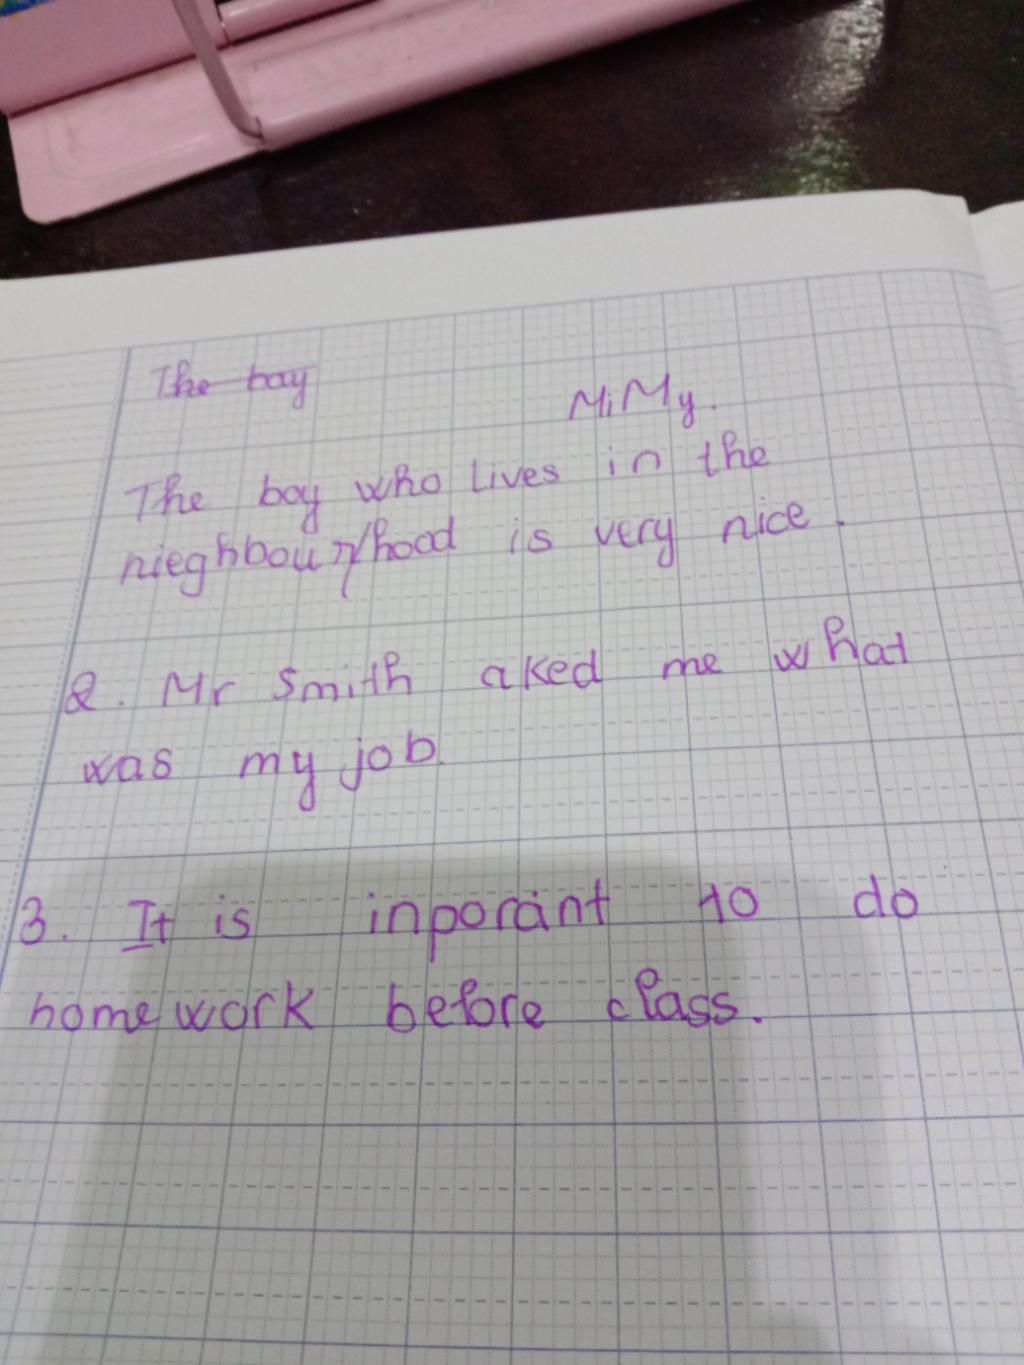 The boy
MiMy.
The boy who lives in the
nieghbour/hood is very nice.
2. Mr Smith aked me what
was my job.
3. It is inporant to do
homework before class.